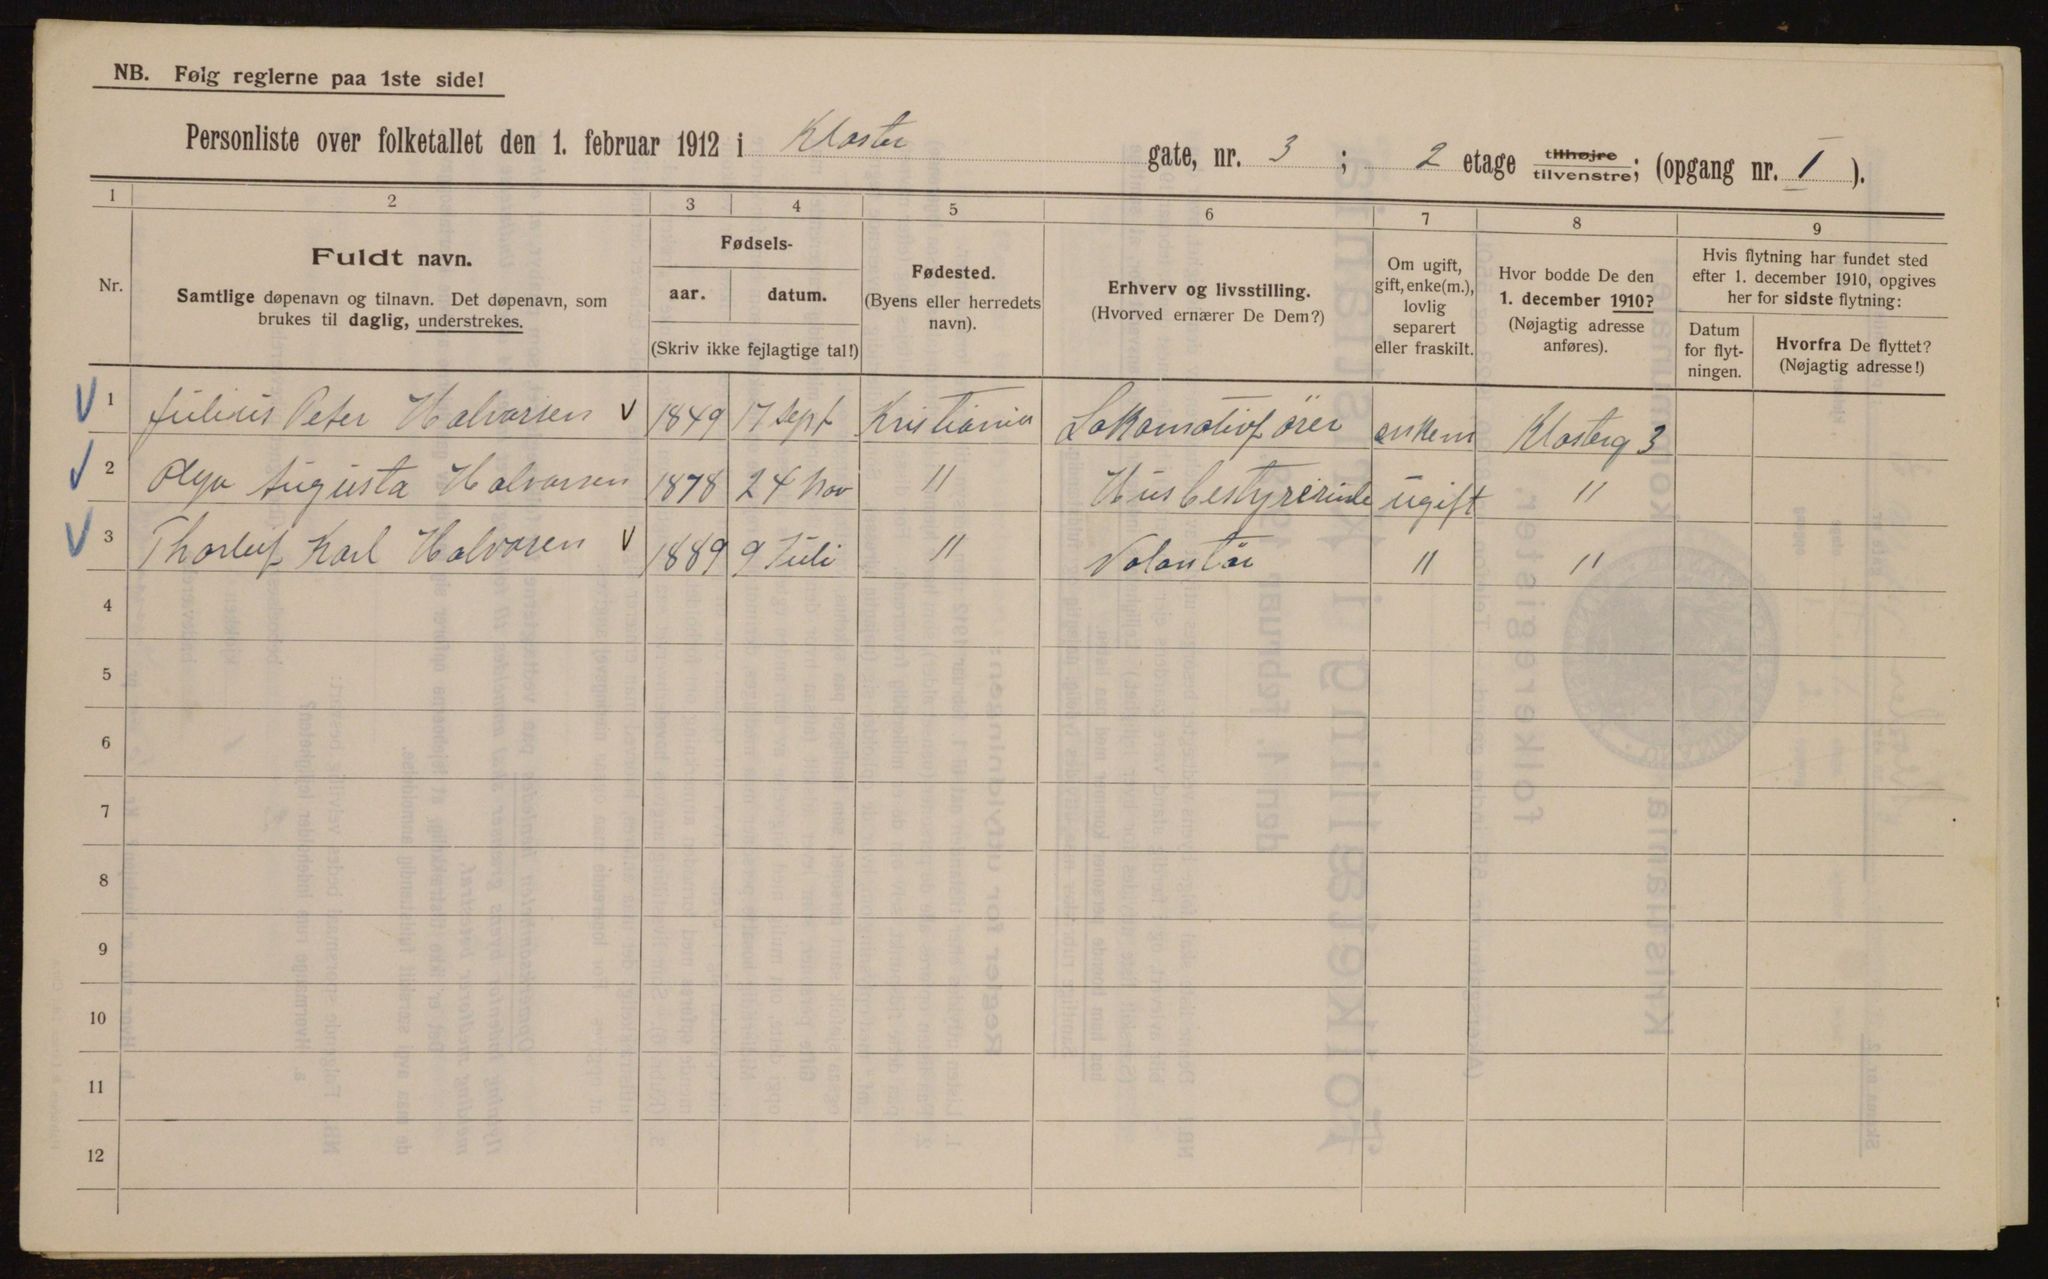 NB. Følg reglerne paa 1ste side!
Personliste over folketallet den 1. februar 1912 i Kloster gate, nr. 3 ; 2 etage tilhøjre tilvenstre; (opgang nr. I ).
1 2 3 4 5 6 7 8 9
Nr.
Fuldt navn.
Samtlige døpenavn og tilnavn. Det døpenavn, som
brukes til daglig, understrekes.
Fødsels-
aar. datum.
(Skriv ikke fejlagtige tal!)
Fødested.
(Byens eller herredets
navn).
Erhverv og livsstilling.
(Hvorved ernærer De Dem?)
Om ugift,
gift, enke(m.),
lovlig
separert
eller fraskilt.
Hvor bodde De den
1. december 1910?
(Nøjagtig adresse
anføres).
Hvis flytning har fundet sted
efter 1. december 1910, opgives
her for sidste flytning:
Datum
for flyt-
ningen.
Hvorfra De flyttet?
(Nøjagtig adresse!)
1 Julius Peter Halvorsen 1849 17 Sept Kristiania Lokomotivfører enkem Klosterg 3
2 Olga Augusta Halvorsen 1878 24 Nov " Husbestyrerinde ugift "
3 Thorleif Karl Halvorsen 1889 9 Juli " Volontør " "
4
5
6
7
8
9
10
11
12